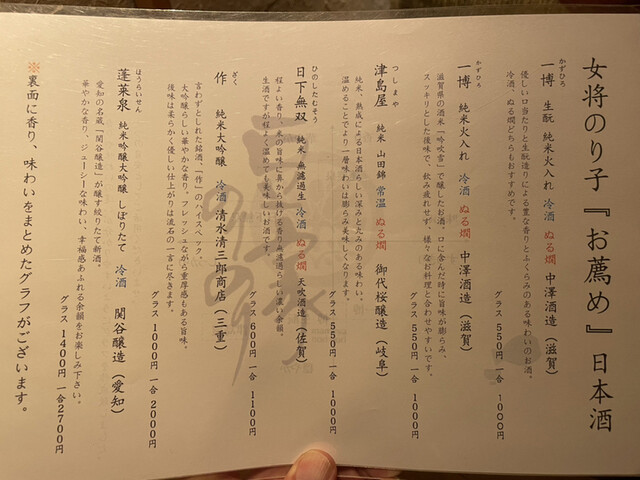 女将のり子『お薦め』日本酒
かずひろ
一博 生酛 純米火入れ 冷酒 ぬる燗 中澤酒造（滋賀）
優しい口当たりと生酛造りによる豊な香りとふくらみのある味わいのお酒。
冷酒、ぬる燗どちらもおすすめです。
グラス 550円 一合 1000円
かずひろ
一博 純米火入れ 冷酒 ぬる燗 中澤酒造（滋賀）
滋賀県の酒米「吟吹雪」で醸したお酒。口に含んだ時に旨味が膨らみ、
スッキリとした後味で、飲み疲れせず、様々なお料理と合わせやすいです。
グラス 550円 一合 1000円
つしまや
津島屋 純米 山田錦 常温 ぬる燗 御代桜醸造（岐阜）
純米、熟成による日本酒らしい深みと丸みのある味わい。
温めることでより一層味わいは膨らみ美味しくなります。
グラス 550円 一合 1000円
ひのしたむそう
日下無双 純米 無濾過生 冷酒 ぬる燗 天吹酒造（佐賀）
程よい香り、米の旨味に鼻から抜ける香り無濾過らしい濃い余韻。
生酒ですが程よく温めても美味しいお酒です。
グラス 600円 一合 1100円
ざく
作 純米大吟醸 冷酒 清水清三郎商店（三重）
言わずとしれた銘酒、「作」のハイスペック。
大吟醸らしい華やかな香り、フレッシュながら重厚感もある旨味。
後味は柔らかく優しい仕上がりは流石の一言に尽きます。
グラス 1000円 一合 2000円
ほうらいせん
蓬莱泉 純米吟醸大吟醸 しぼりたて 冷酒 関谷醸造（愛知）
愛知の名蔵「関谷醸造」が醸す搾りたて新酒。
華やかな香り、ジューシーな味わい、幸福感あふれる余韻をお楽しみ下さい。
グラス 1400円 一合 2700円
※裏面に香り、味わいをまとめたグラフがございます。